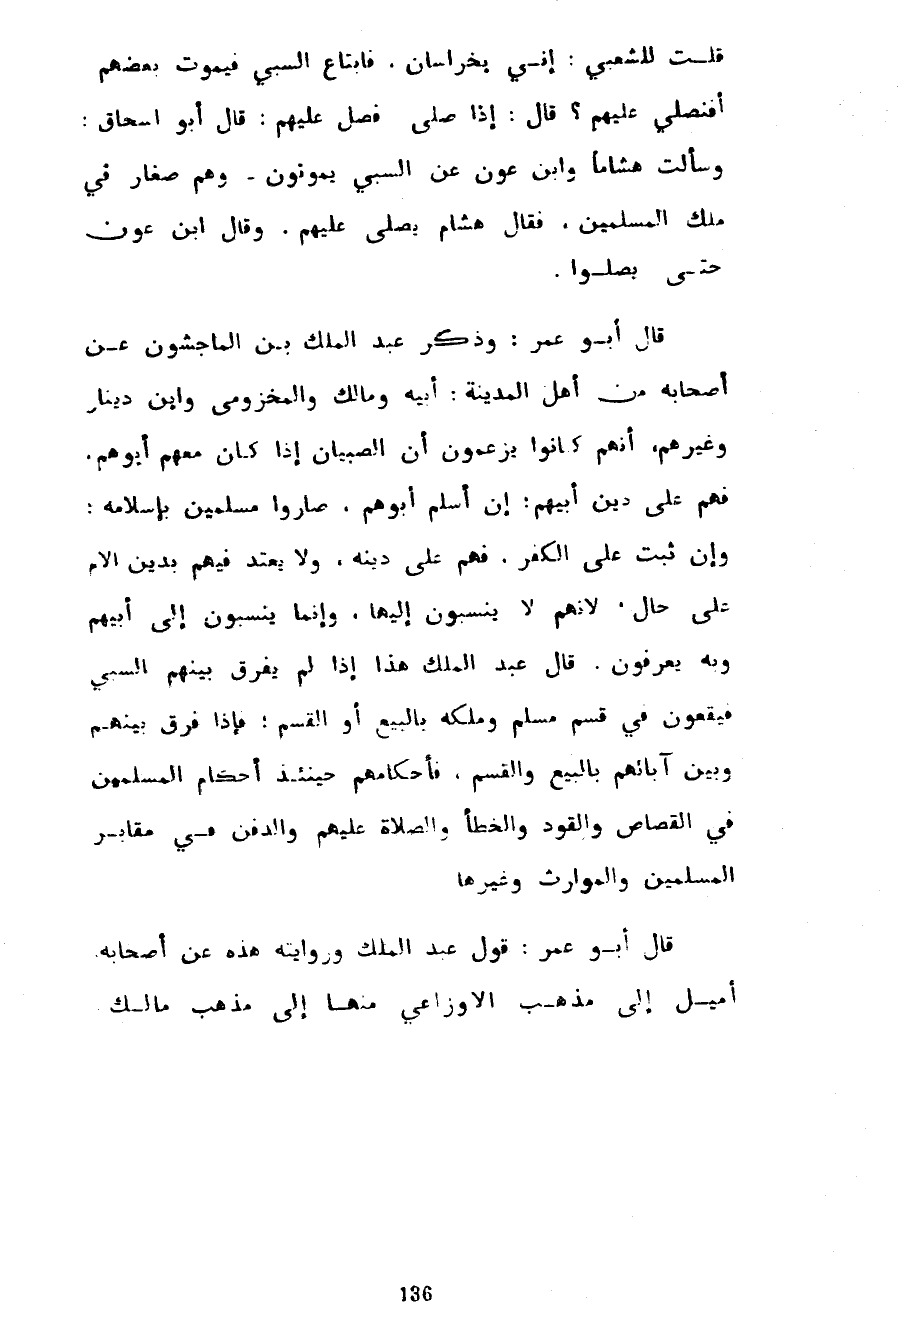 قلت للشعبي : إني بخراسان ، فابتاع السبي فيموت بعضهم
أفنصلي عليهم ؟ قال : إذا صلى فصل عليهم : قال أبو اسحاق :
وسألت هشاماً وابن عون عن السبي يموتون - وهم صغار في
ملك المسلمين ، فقال هشام يصلى عليهم . وقال ابن عون
حتى يصلوا .
قال أبو عمر : وذكر عبد الملك بن الماجشون عن
أصحابه من أهل المدينة : أبيه ومالك والمخزومى وابن دينار
وغيرهم، أنهم كانوا يزعمون أن الصبيان إذا كان معهم أبوهم،
فهم على دين أبيهم: إن أسلم أبوهم ، صاروا مسلمين بإسلامه :
وإن ثبت على الكفر ، فهم على دينه ، ولا يعتد فيهم بدين الام
على حال ' لانهم لا ينسبون إليها ، وإنما ينسبون إلى أبيهم
وبه يعرفون . قال عبد الملك هذا إذا لم يفرق بينهم السبي
فيقعون في قسم مسلم وملكه بالبيع أو القسم ؛ فإذا فرق بينهم
وبين آبائهم بالبيع والقسم ، فأحكامهم حينئذ أحكام المسلمين
في القصاص والقود والخطأ والصلاة عليهم والدفن في مقابر
المسلمين والموارث وغيرها
قال أبو عمر : قول عبد الملك وروايته هذه عن أصحابه،
أميل إلى مذهب الاوزاعي منها إلى مذهب مالك .
136